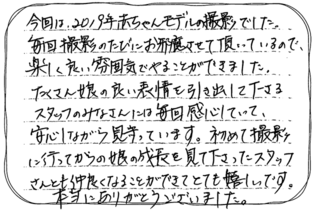 今回は、2019年赤ちゃんモデルの撮影でした。
毎回撮影のたびにお邪魔させて頂いているので、
楽しく良い雰囲気でやることができました。
たくさん娘の良い表情を引き出して下さる
スタッフのみなさんには毎回感心していて、
安心しながら見守っています。初めて撮影
に行ってからの娘の成長を見て下さったスタッフ
さんとも仲良くなることができてとても嬉しいです。
本当にありがとうございました。